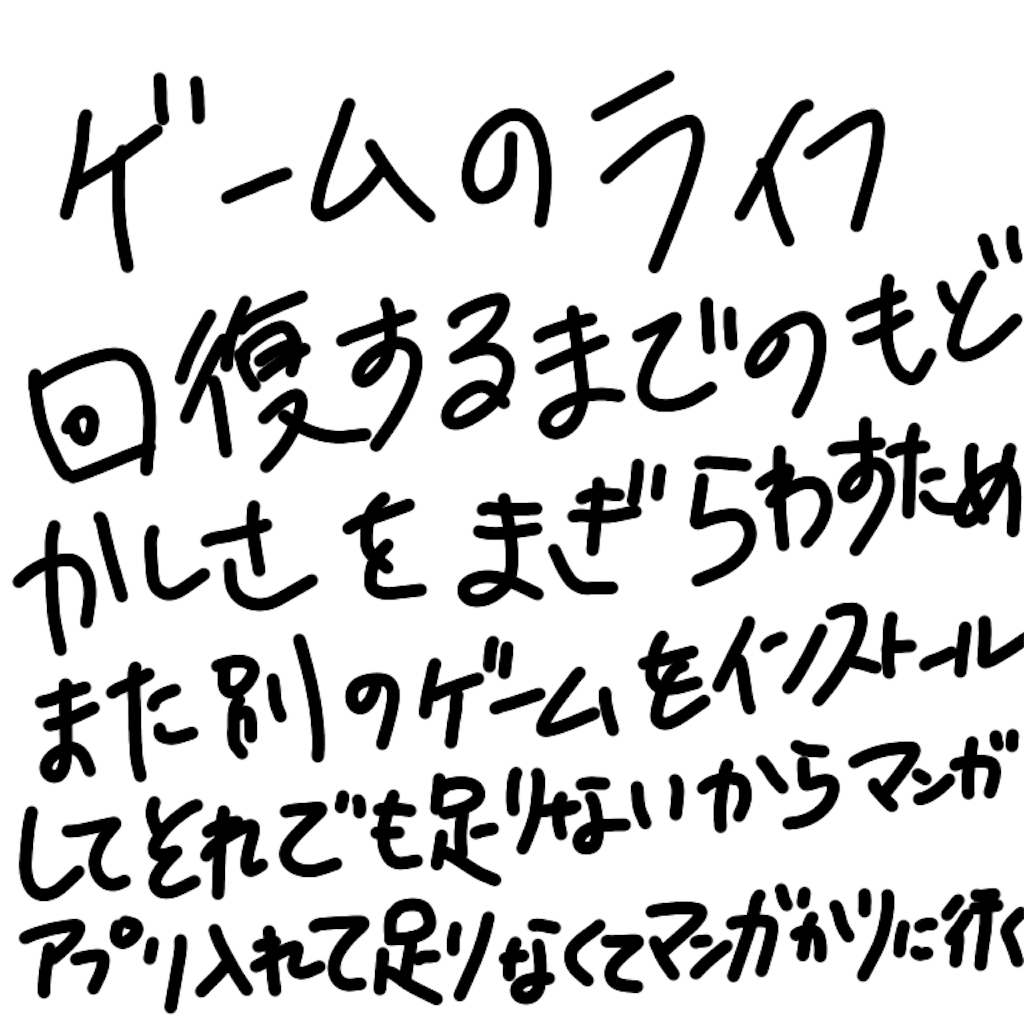 ゲームのライフ
回復するまでのもど
かしさをまぎらわすため
また別のゲームをインストール
してそれでも足りないからマンガ
アプリ入れて足りなくてマンガかりに行く